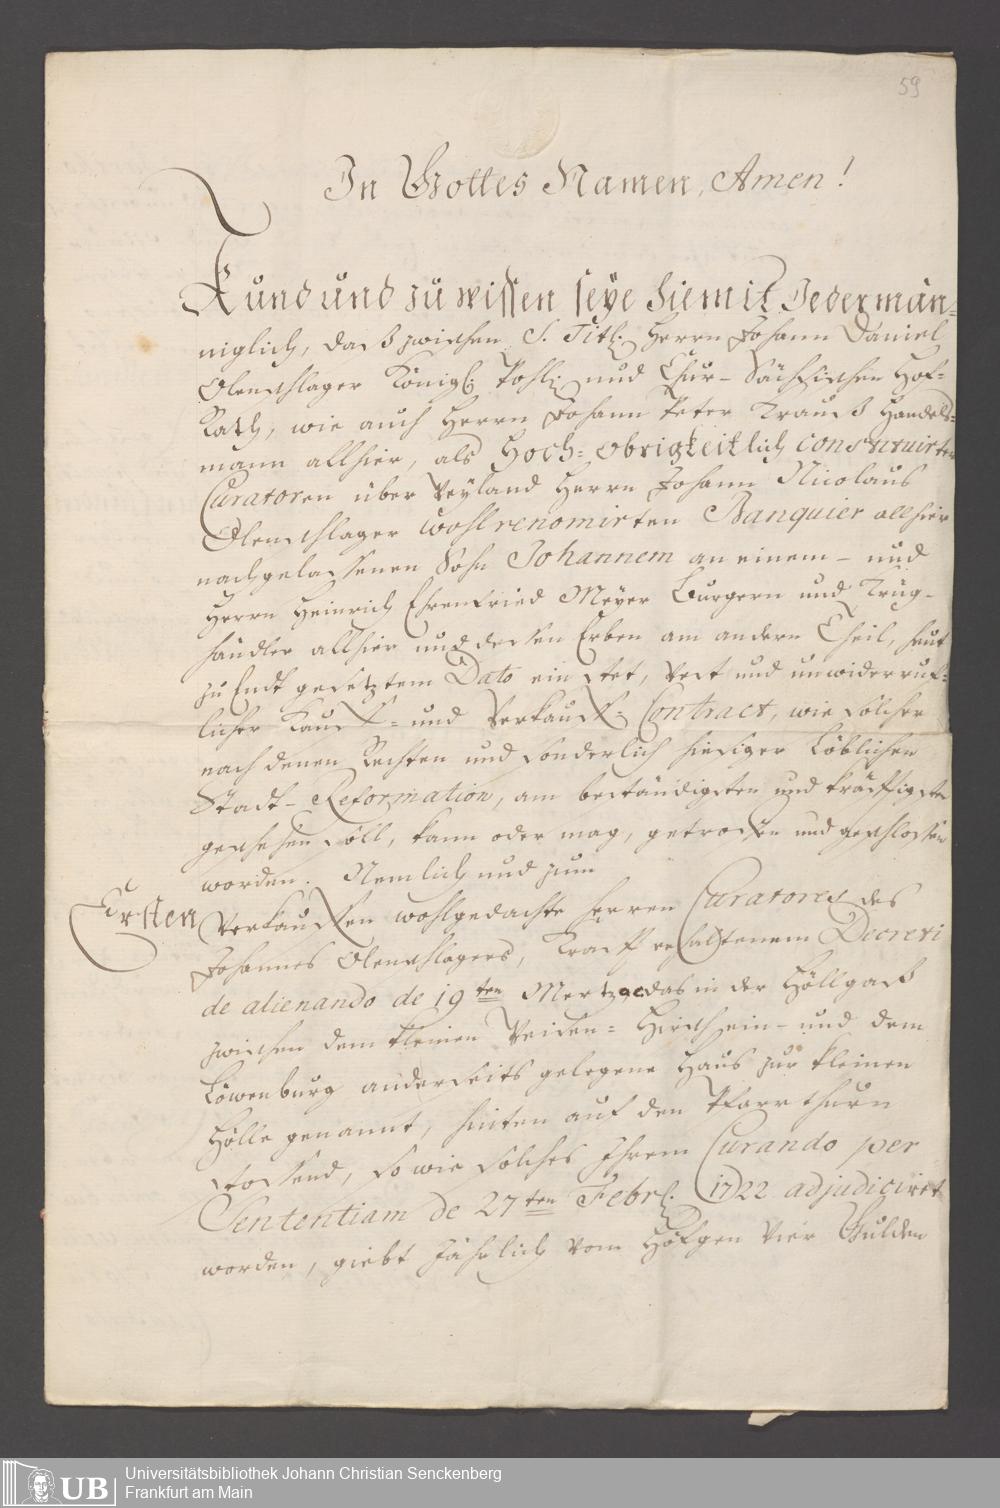 59
In Gottes Namen, Amen!
Kund und zu wissen seye hiemit Jedermän-
niglich, daß zwischen S. Titl: Herrn Johann Daniel
Olenschlager Königl: Pohl: und Chur-Sächsischen Hof-
Rath, wie auch Herrn Johann Peter Trauß Handels-
mann allhier, als Hoch-Obrigkeitlich constituirten
Curatoren über Weyland Herrn Johann Nicolaus
Olenschlager wohl renomirten Banquier allhier
nachgelassenen Sohn Johannem an einem- und
Herrn Heinrich Ehrenfried Meyer Burgern und Trug-
händler allhier und dessen Erben am andern Theil, heut
zu Endt gesetztem Dato ein stet, vest und unwiderruf-
licher Kauff- und Verkauff-Contract, wie solcher
nach denen Rechten und sonderlich hiesiger Löblichen
Stadt-Reformation, am beständigsten und kräfftigsten
geschehen soll, kann oder mag, getroffen und geschlossen
worden. Nemlich und zum
Ersten Verkauffen wohlgedachte Herren Curatores des
Johannes Olenschlagers, Krafft erhaltenem Decreti
de alienando de 19ten Mertz ac das in der Höllgass
zwischen dem kleinen Weisen-Hirsch ein- und dem
Löwenburg anderseits gelegene Haus zur kleinen
Hölle genannt, hinten auf den Pfarrthurn
stossend, so wie solches Ihrem Curando per
Sententiam de 27ten Febrl: 1722 adjudiciret
worden, giebt Jährlich vom Höfgen vier Gulden
UB
Universitätsbibliothek Johann Christian Senckenberg
Frankfurt am Main